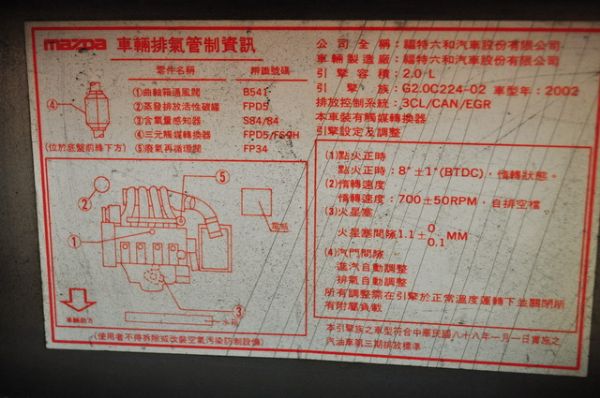 mazda 車輛排氣管制資訊
零件名稱 辨識號碼
①曲軸箱通風閥 B541
②蒸發排放活性碳罐 FPD5
③含氧量感知器 S84/84
④三元觸媒轉換器 FPD5/FS9H
(位於底盤前緣下方)
⑤廢氣再循環閥 FP34
④
②
⑤
①
電瓶
③
水箱
車輛前方
(使用者不得拆除或改裝空氣污染防制設備)
公司全稱：福特六和汽車股份有限公司
車輛製造廠：福特六和汽車股份有限公司
引擎容積：2.0 L
引擎族：G2.0C224-02 車型年：2002
排放控制系統：3CL/CAN/EGR
本車裝有觸媒轉換器
引擎設定及調整
(1)點火正時
點火正時：8°±1°(BTDC)，惰轉狀態。
(2)惰轉速度
惰轉速度：700±50RPM，自排空檔。
(3)火星塞
火星塞間隙1.1± 0 0.1 MM
(4)汽門間隙
進汽自動調整
排氣自動調整
所有調整需在引擎於正常溫度運轉下並關閉所
有附屬負載
本引擎族之車型符合中華民國八十八年一月一日實施之
汽油車第三期排放標準